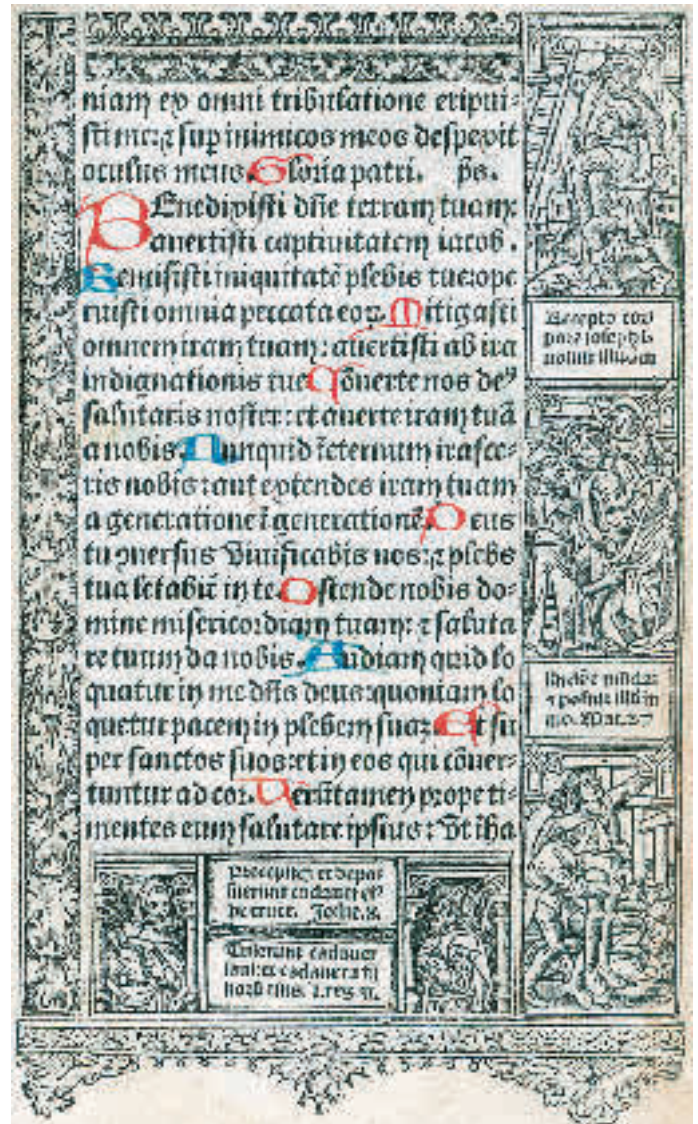 niam ex omni tribulatione eripui-
sti me: ⁊ suꝑ inimicos meos despexit
oculus meus. Gloria patri. ps.
BEnedixisti dn̄e terram tuam:
auertisti captiuitatem iacob.
Remisisti iniquitatē plebis tue: ope
ruisti omnia peccata eoꝝ. Mitigasti
omnem iram tuam: auertisti ab ira
indignationis tue. Cōuerte nos deꝰ
salutaris noster: et auerte iram tuā
a nobis. Nunquid ī eternum irasce-
ris nobis: aut extendes iram tuam
a generatione ī generationē. Deus
tu ꝯuersus viuificabis nos: ⁊ plebs
tua letabit̄ in te. Ostende nobis do-
mine misericordiam tuam: ⁊ saluta
re tuum da nobis. Audiam quid lo
quatur in me dn̄s deus: quoniam lo
quetur pacem in plebem suaꝫ. Et su
per sanctos suos: et in eos qui cōuer-
tuntur ad cor. Uerūtamen prope ti-
mentes eum salutare ipsius: vt iha
Accepto cor
pore ioseph ī
uoluit illud in
⁊ posuit illud in
mo. Mat. 27
Precepit et depo-
suerunt cadauer eiꝰ
de cruce. Josue. 8.
Tulerunt cadauer
saul: et cadauera fi
lioꝝ eius. 1. reg. 31.